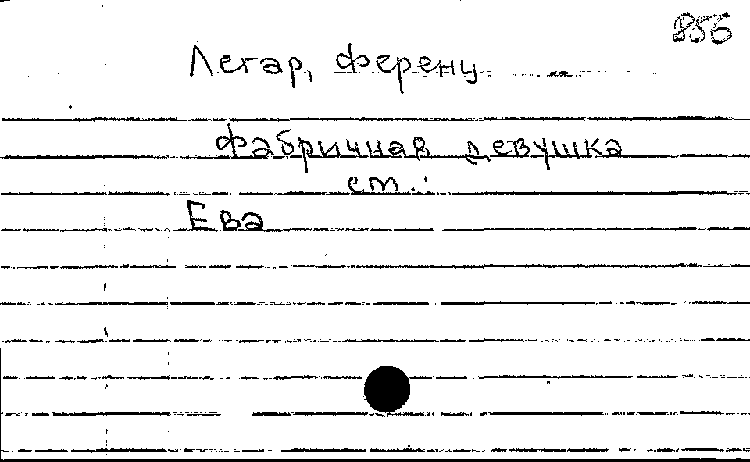 856
Легар, Ференц
Фабричная девушка
см.:
Ева